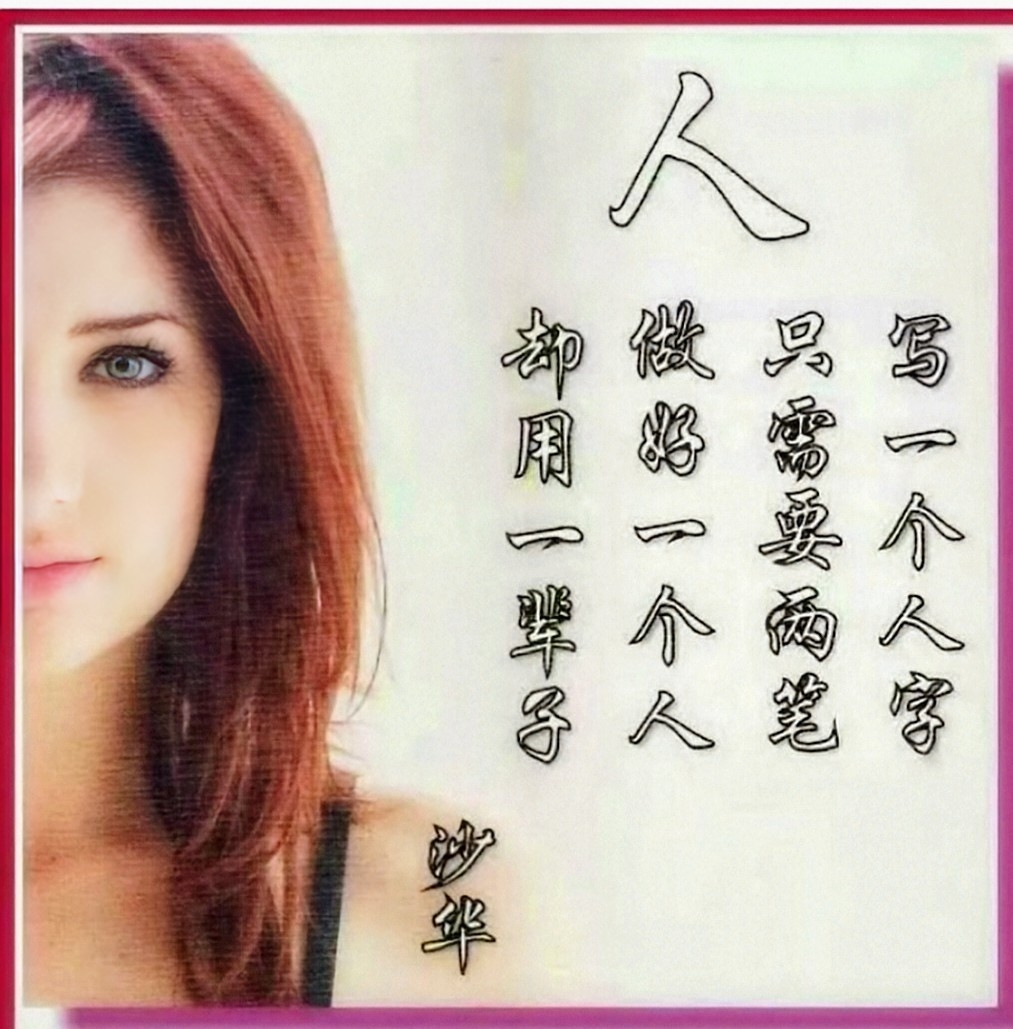 人
写一个人字
只需要两笔
做好一个人
却用一辈子
沙华